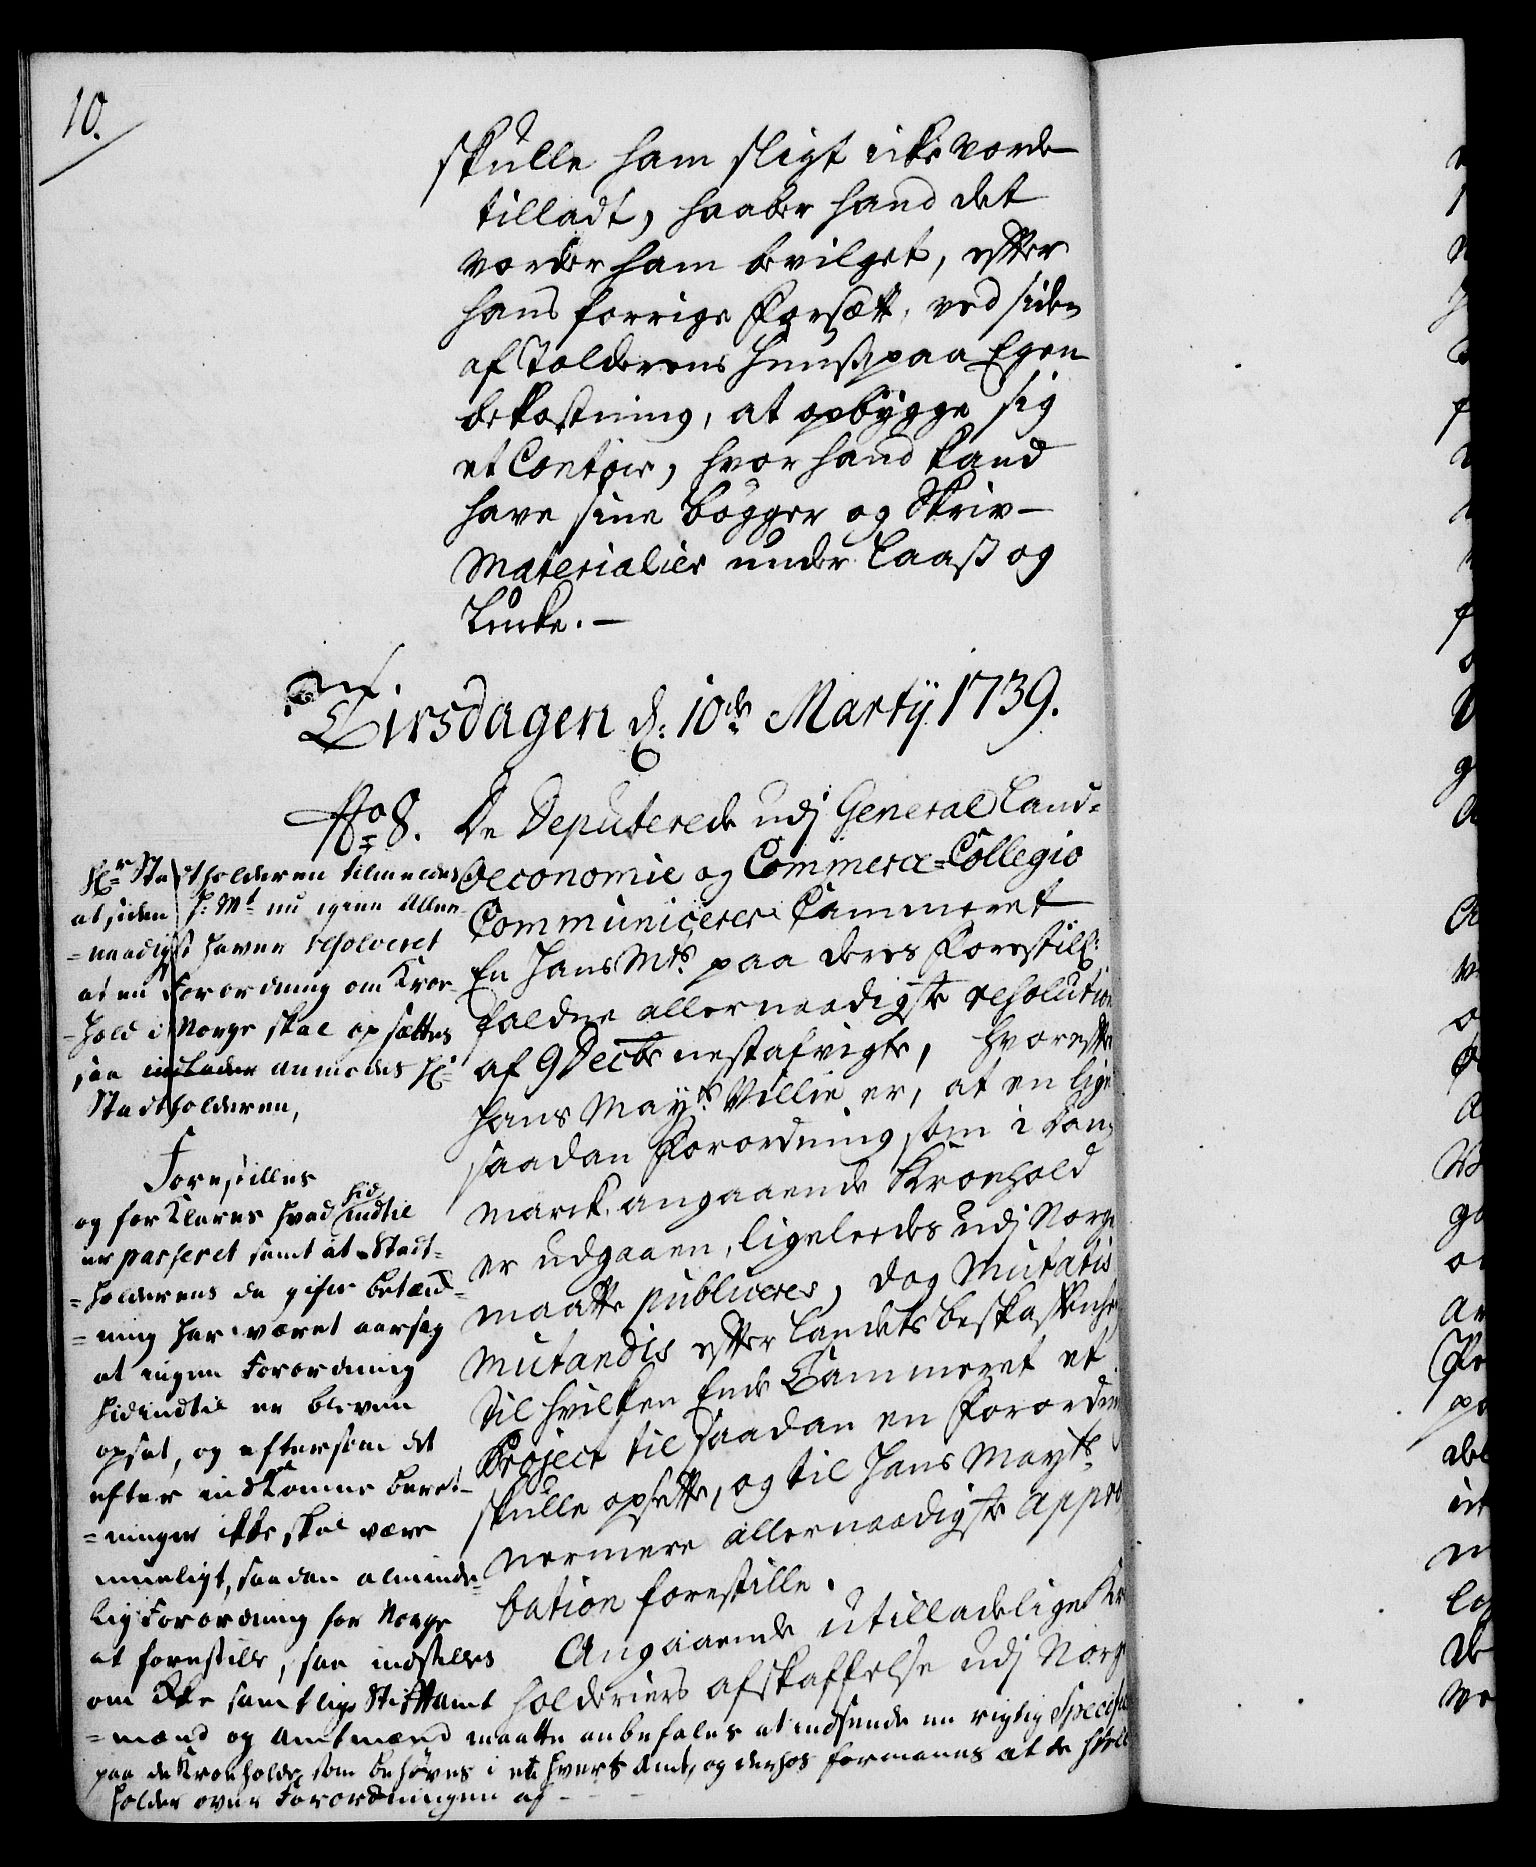 10.
skulle ham sligt icke vorde
tilladt, haaber hand det
vorder ham bevilget, efter
hans forrige Forsætt, ved siden
af Tolderens Huuss, paa Egen
bekostning, at opbygge sig
et Contoir, hvor hand kand
have sine bøgger og Skriv-
Materialier under Laass og
Lucke. -
Tirsdagen d: 10de Martÿ 1739.
No 8.
De Deputerede udj General Land-
Oeconomie og Commerce-Collegio
Communicerer Cammeret
En Hans Mts paa deres Forestill:
faldne allernaadigste resolution
af 9 Decbr nestafvigte, hvorefter
Hans Mayts Villie er, at en lige
saadan Forordning som i Dan-
marck angaaende Kroehold
er udgaaen, ligeleedes udj Norge
maatte publiceres, dog Mutatis
Mutandis efter Landets beskaffenhed
til hvilken Ende Cammeret et
Project til saadan en Forordning
skulle opsette, og til Hans Mayts
nermere allernaadigste appro-
bation forestille.
Angaaende utilladelige Kro
holderiers afskaffelse udj Norge
Hr Statholderen tilmeldes
at siden H: Mt nu igien Aller-
-naadigst haver resolveret
at en Forordning om Kroe-
-hold i Norge skal opsættes
saa anmodes Hr
Stadtholderen,
Forestilles
og forklares hvad hid indtil
er passeret samt at Stadt-
-holderens da gifne betænk-
-ning har været aarsag
at ingen Forordning
hidindtil er bleven
opsat, og eftersom det
efter indkomne beret-
-ninger ikke skal være
mueligt, saadan alminde-
lig Forordning for Norge
at forestille, saa indstilles
om Ikke samtlige Stiftamt
-mænd og Amtmænd maatte anbefales at indsende en rigtig Specifica
paa de Kroeholder som behøves i et hvert Amt, og derhos formanes at de skulle
holder over Forordningen af - - -